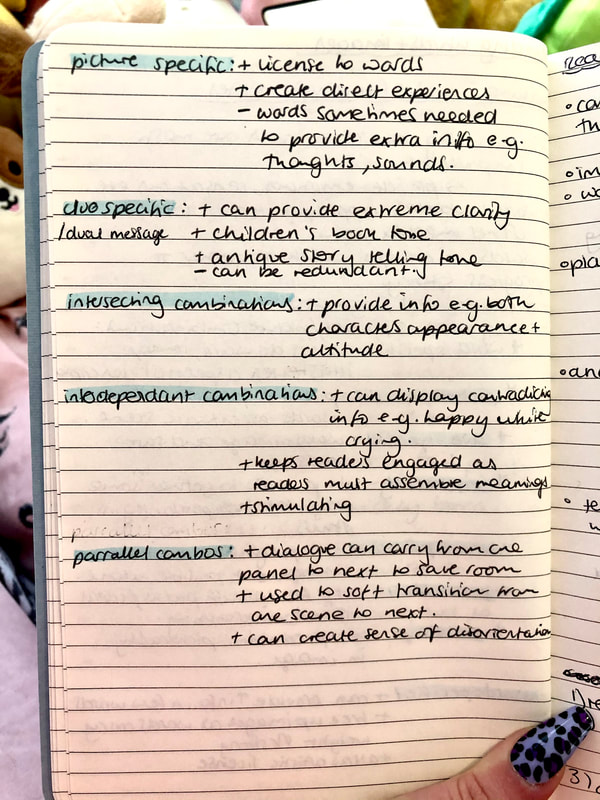 picture specific: + license to words
+ create direct experiences
- words sometimes needed
to provide extra info e.g.
thoughts, sounds.
duospecific : + can provide extreme clarity
/dual message + children's book tone
+ antique story telling tone
- can be redundant.
intersecting combinations: + provide info e.g. both
characters appearance +
attitude
interdependant combinations: + can display contradicting
info e.g. happy while
crying.
+ keeps readers engaged as
readers must assemble meanings
+ stimulating
parrallel combos: + dialogue can carry from one
panel to next to save room
+ used to soft transition from
one scene to next.
+ can create sense of disorientation